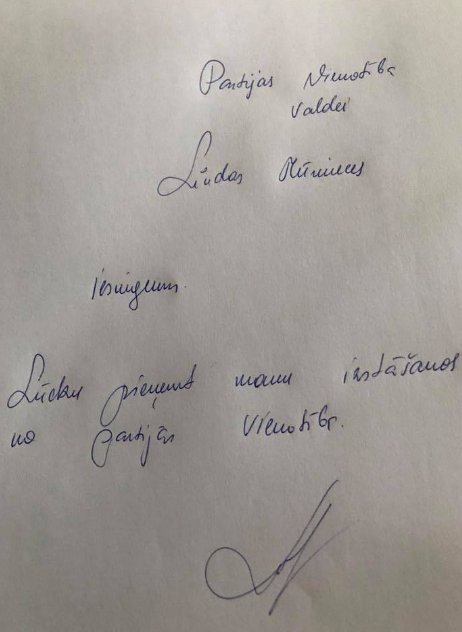 Partijas Vienotība
valdei
Lindas Mūrnieces
Iesniegums.
Lūdzu pieņemt manu izstāšanos
no partijas Vienotība.